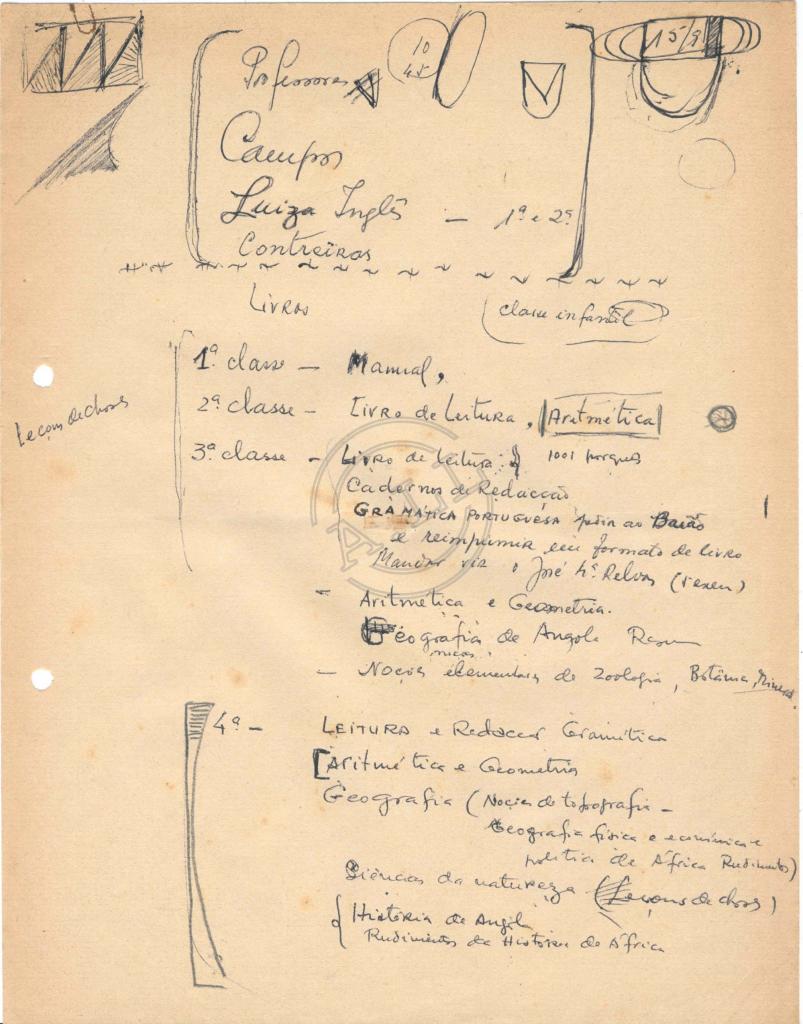 10
45
15/9
Professores
Campos
Luiza Inglês — 1ª e 2ª
Contreiras
Livros
classe infantil
1ª classe — Manual,
2ª classe — Livro de Leitura, Aritmética
Leçons de choses
3ª classe — Livro de Leitura: 1001 porquês
Cadernos de Redacção
GRAMÁTICA PORTUGUESA pedir ao Baião
e reimprimir em formato de livro
Mandar vir o José Relvas
- Aritmética e Geometria.
Geografia de Angola
— Noções elementares de Zoologia, Botânica,
4ª — LEITURA e Redacção Gramática
Aritmética e Geometria
Geografia (Noções de topografia —
Geografia física e económica e
política de África Rudimentos)
Ciências da natureza (Leçons de choses)
História de Angola
Rudimentos da História de África